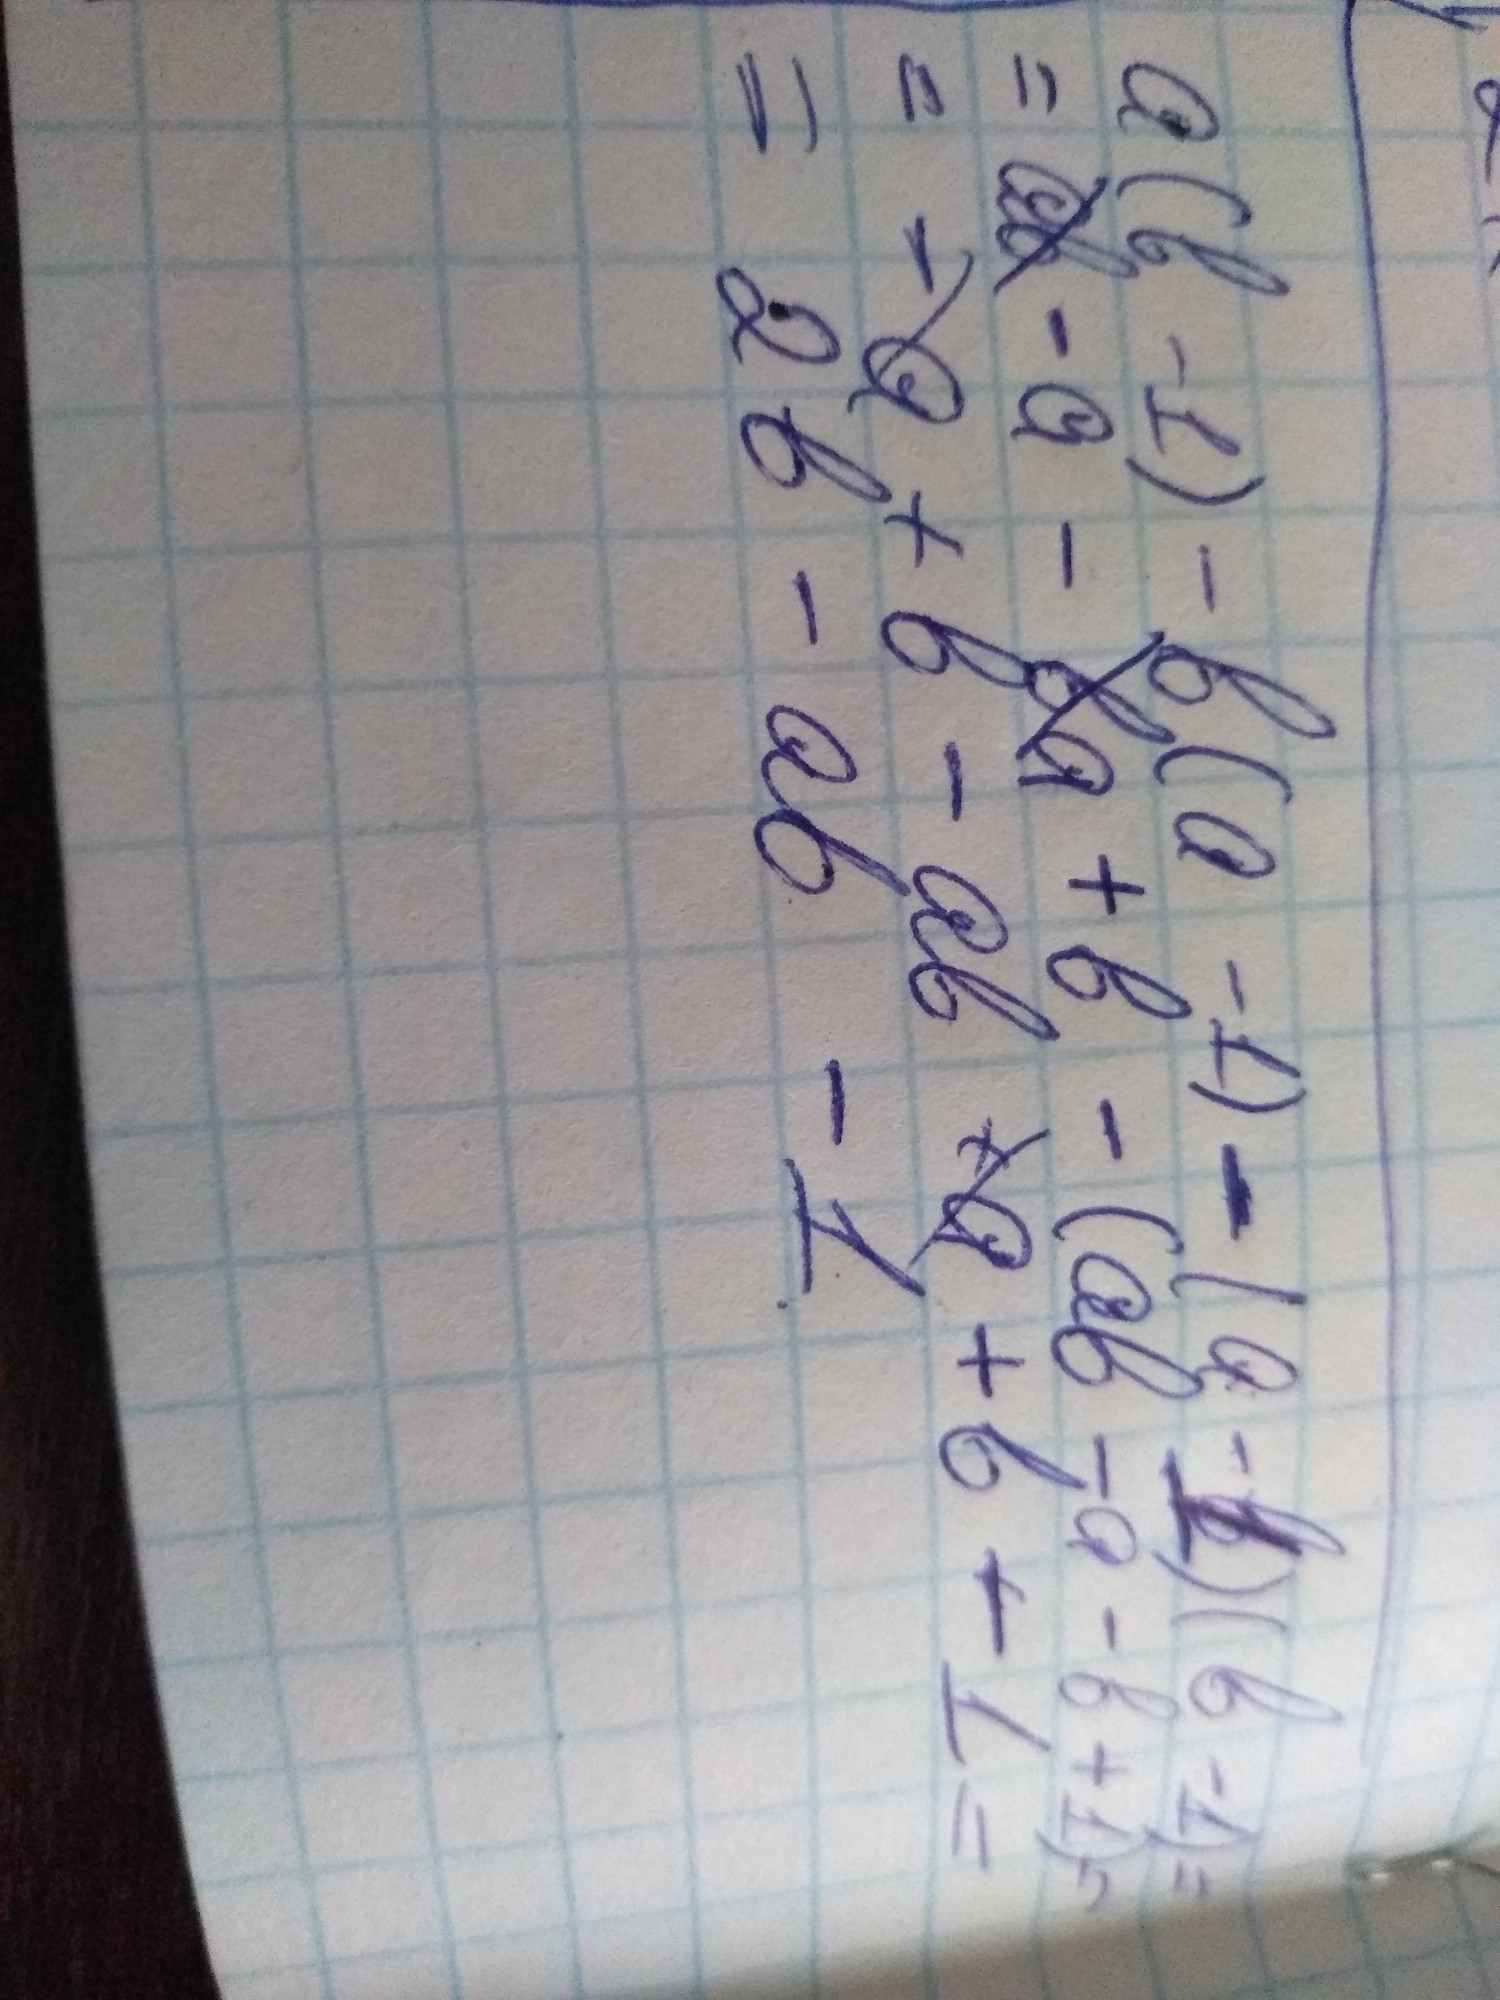 a(b-1)-b(a-1)-(a-1)(b-1)=
=ab-a-ba+b-(ab-a-b+1)=
=-a+b-ab+a+b-1=
=2b-ab-1